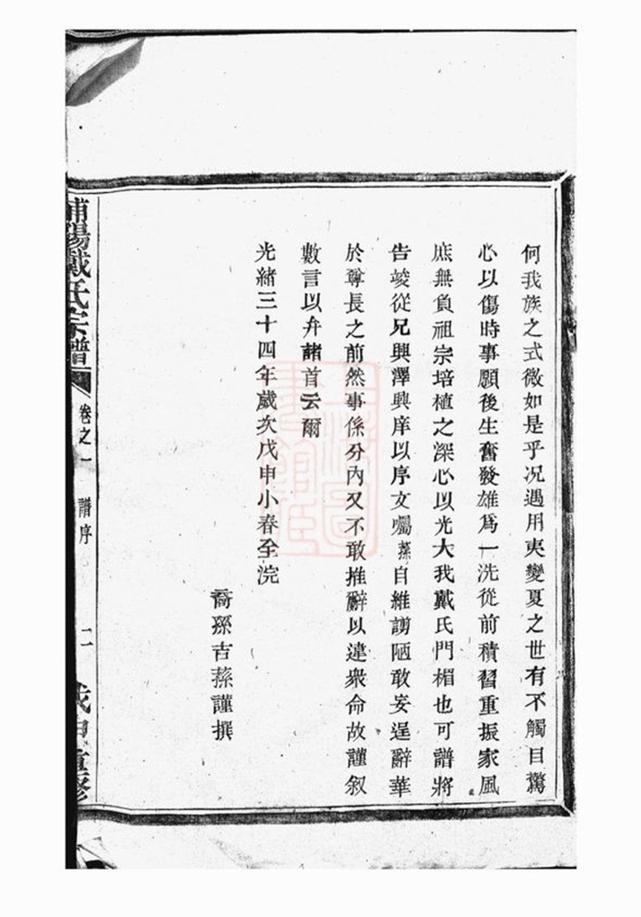 何我族之式微如是乎况遇用夷變夏之世有不觸目驚
心以傷時事願後生奮發雄爲一洗從前積習重振家風
庶無負祖宗培植之深心以光大我戴氏門楣也可譜將
告竣從兄興澤興庠以序文囑蓀自維謭陋敢妄逞辭華
於尊長之前然事係分內又不敢推辭以違衆命故謹叙
數言以弁諸首云爾
光緒三十四年歲次戊申小春全浣
裔孫吉蓀謹撰
浦陽戴氏宗譜 卷之一 譜序 二 戊申重修